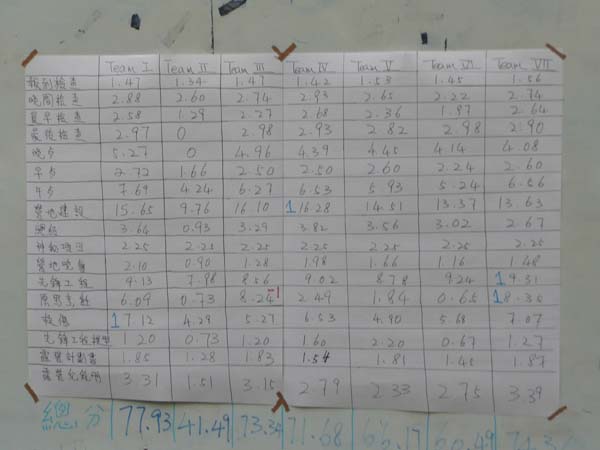 Team I Team II Team III Team IV Team V Team VI Team VII
報到檢查 1.47 1.34 1.47 1.42 1.53 1.45 1.56
晚間檢查 2.88 2.60 2.74 2.93 2.65 2.22 2.74
夏早檢查 2.58 1.29 2.27 2.68 2.36 1.97 2.64
最後檢查 2.97 0 2.98 2.93 2.82 2.98 2.90
晚夕 5.27 0 4.96 4.39 4.45 4.14 4.08
早夕 2.72 1.66 2.50 2.50 2.60 2.24 2.60
午夕 7.69 4.24 6.27 6.53 5.93 5.24 6.56
營地建設 15.65 9.76 16.10 1 16.28 14.51 13.37 13.63
3.64 0.93 3.29 3.82 3.56 3.02 2.67
2.25 2.25 2.25 2.25 2.25 2.25 2.25
營地 2.10 0.90 1.28 1.98 1.66 1.16 1.48
先鋒工程 9.13 7.98 8.56 9.02 8.78 9.24 1 9.31
原野烹飪 6.09 0.73 8.24 -1 2.49 1.84 0.65 1 8.35
救傷 1 7.12 4.29 5.27 6.53 4.90 5.68 7.07
先鋒工程模型 1.20 0.73 1.20 1.60 2.20 0.67 1.27
露營計劃書 1.85 1.28 1.83 1.54 1.81 1.45 1.87
露營 3.31 1.51 3.15 2.79 2.33 2.75 3.39
總分 77.93 41.49 73.34 71.68 66.17 60.49